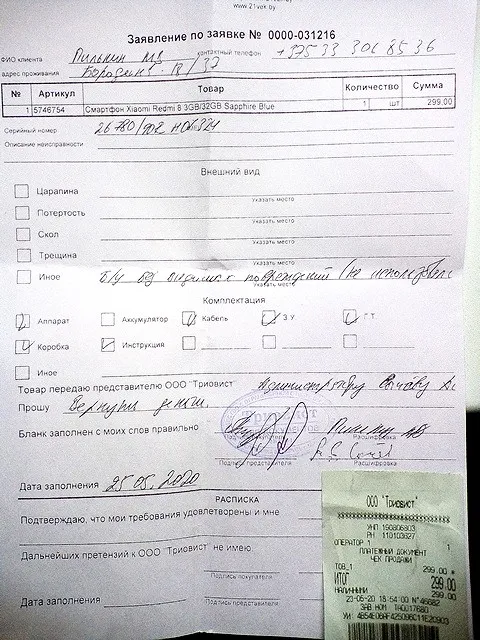 www.21vek.by
Заявление по заявке № 0000-031216
ФИО клиента Пилькин контактный телефон +375 33 306 85 36
адрес проживания 18/37
№ Артикул Товар Количество Сумма
1 5746754 Смартфон Xiaomi Redmi 8 3GB/32GB Sapphire Blue 1 шт 299.00
Серийный номер 26780/
Описание неисправности
Внешний вид
Царапина
Указать место
Потертость
Указать место
Скол
Указать место
Трещина
Указать место
Иное б/у без видимых повреждений
Указать место
Комплектация
Аппарат Аккумулятор Кабель З.У. Г.Т.
Коробка Инструкция
Иное
Товар передаю представителю ООО "Триовист" Администратору
Прошу Вернуть деньги.
Бланк заполнен с моих слов правильно
Расшифровка
Триовист
Подпись представителя Расшифровка
Дата заполнения 25.05.2020
РАСПИСКА
Подтверждаю, что мои требования удовлетворены и мне
Дальнейших претензий к ООО "Триовист" не имею.
Подпись покупателя
Дата заполнения Подпись представителя
ООО "Триовист"
УНП 190806803
РН 110103627
ОПЕРАТОР 1 1
ПЛАТЕЖНЫЙ ДОКУМЕНТ
ЧЕК ПРОДАЖИ
ТОВ_1 299.00
ИТОГ 299.00
НАЛИЧНЫМИ 299.00
23-05-20 18:54:00 N°46682
ЗАВ.НОМ TA0017680